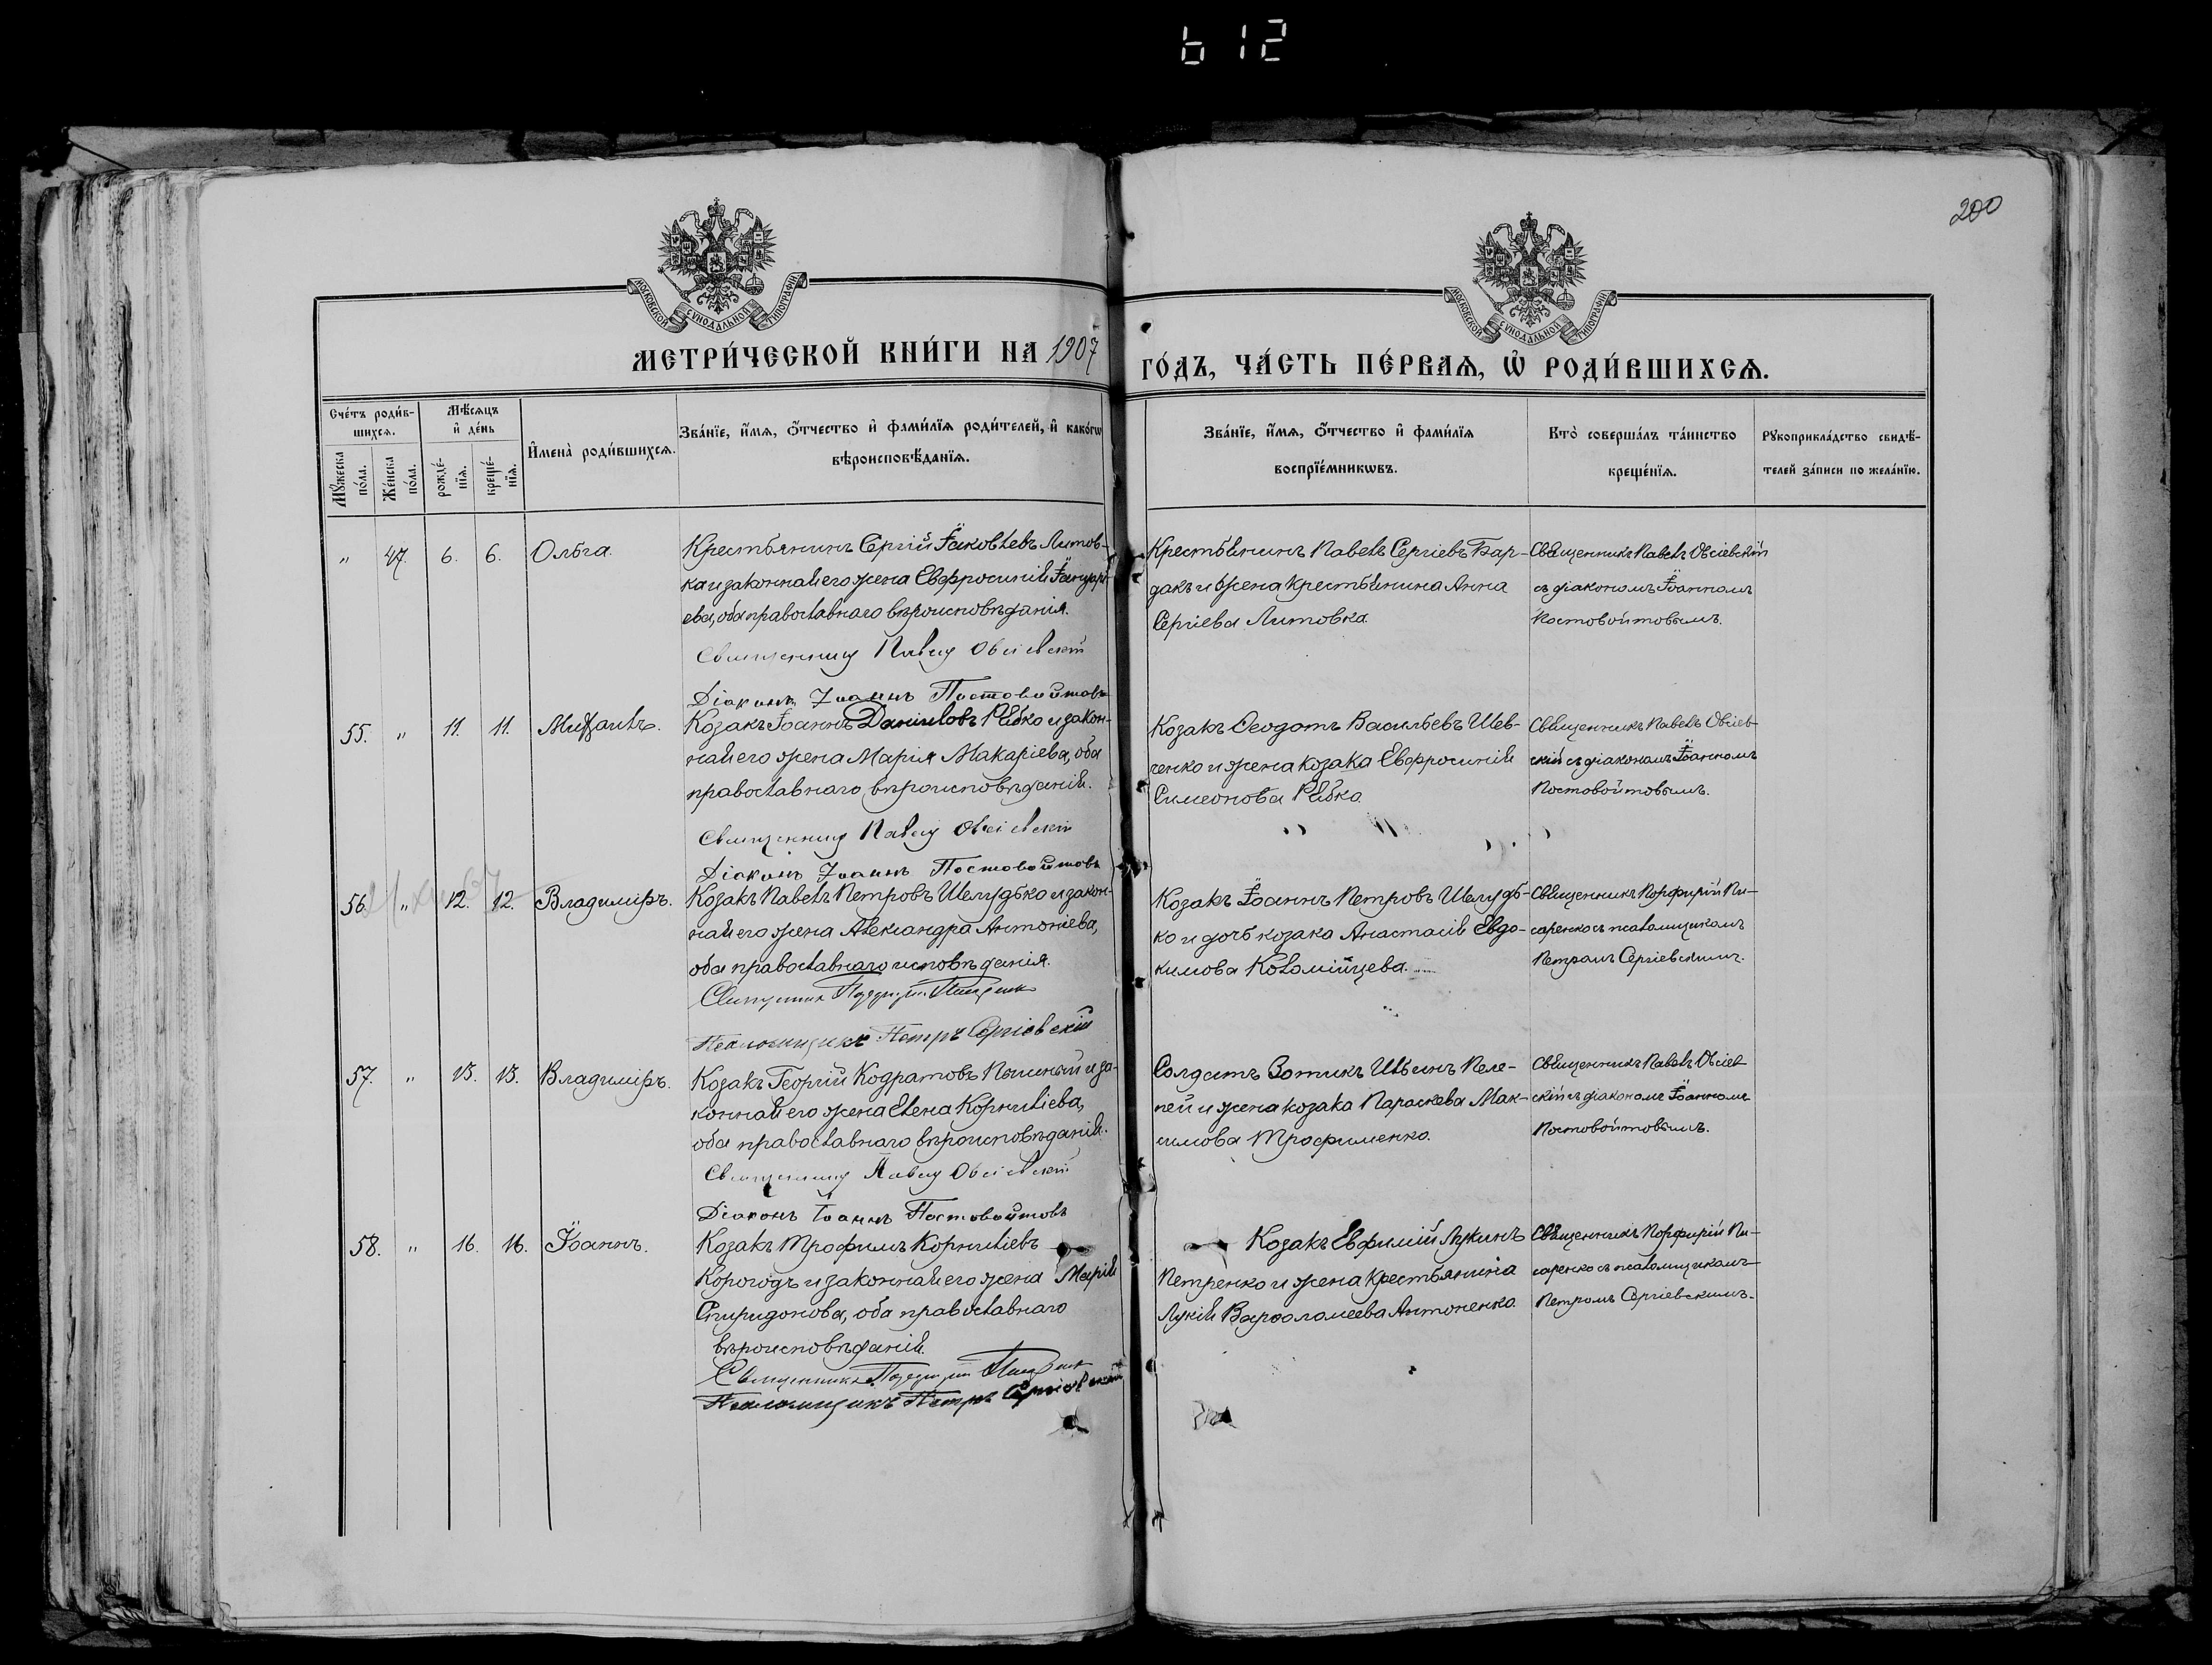 612
200
МОСКОВСКОЙ СѴНОДАЛЬНОЙ ТИПОГРАФІИ
МОСКОВСКОЙ СѴНОДАЛЬНОЙ ТИПОГРАФІИ
МЕТРИ́ЧЕСКОЙ КНИ́ГИ НА 1907
ГО́ДЪ, ЧА́СТЬ ПЕ́РВАѦ, Ѡ҆ РОДИ́ВШИХСѦ.
Сче́тъ роди́в-
шихсѧ.
Мꙋ́жеска по́ла.
Же́нска по́ла.
Мѣ́сѧцъ
и҆ де́нь
рожде́-
нїѧ.
креще́-
нїѧ.
И҆мена̀ роди́вшихсѧ.
Зва́нїе, и҆́мѧ, ѻ҆́тчество и҆ фами́лїѧ роди́телей, и҆ како́гѡ
вѣроисповѣ́данїѧ.
Зва́нїе, и҆́мѧ, ѻ҆́тчество и҆ фами́лїѧ
воспрїе́мникѡвъ.
Кто̀ соверша́лъ та́инство
креще́нїѧ.
Рꙋкоприкла́дство свидѣ́-
телей за́писи по жела́нїю.
" 47. 6. 6. Ольга.
Крестьянинъ Сергій Іаковлевъ Литов-
ка и законная его жена Евфросинія Іануарі-
ева, оба православнаго вѣроисповѣданія.
Священникъ Павелъ Овсіевскій
Діаконъ Іоаннъ Постовойтовъ
Крестьянинъ Павелъ Сергіевъ Бар-
дакъ и жена крестьянина Анна
Сергіева Литовка.
Священникъ Павелъ Овсіевскій
съ діакономъ Іоанномъ
Постовойтовымъ.
55. " 11. 11. Михаилъ.
Козакъ Іоаннъ Даніиловъ Рябко и закон-
ная его жена Марія Макаріева, оба
православнаго вѣроисповѣданія.
Священникъ Павелъ Овсіевскій
Діаконъ Іоаннъ Постовойтовъ
Козакъ Ѳеодотъ Васильевъ Шев-
ченко и жена козака Евфросинія
Симеонова Рябко.
Священникъ Павелъ Овсіев-
скій съ діакономъ Іоанномъ
Постовойтовымъ.
56. " 12. 12. Владиміръ.
Козакъ Павелъ Петровъ Шелудько и закон-
ная его жена Александра Антоніева,
оба православнаго исповѣданія.
Священникъ Порфирій Писаренко
Псаломщикъ Петръ Сергіевскій
Козакъ Іоаннъ Петровъ Шелудь-
ко и дочь козака Анастасія Евдо-
кимова Коломійцева.
Священникъ Порфирій Пи-
саренко съ псаломщикомъ
Петромъ Сергіевскимъ.
57. " 15. 15. Владиміръ.
Козакъ Георгій Кодратовъ и за-
конная его жена Елена Корниліева,
оба православнаго вѣроисповѣданія.
Священникъ Павелъ Овсіевскій
Діаконъ Іоаннъ Постовойтовъ
Солдатъ Зотикъ Ильинъ Пеле-
пей и жена козака Параскева Мак-
симова Трофименко.
Священникъ Павелъ Овсіев-
скій съ діакономъ Іоанномъ
Постовойтовымъ.
58. " 16. 16. Іоаннъ.
Козакъ Трофимъ Корниліевъ
Корогодъ и законная его жена Марія
Спиридонова, оба православнаго
вѣроисповѣданія.
Священникъ Порфирій Писаренко
Псаломщикъ Петръ Сергіевскій
Козакъ Евфимій Лукинъ
Петренко и жена крестьянина
Лукія Варѳоломеева Антоненко.
Священникъ Порфирій Пи-
саренко съ псаломщикомъ
Петромъ Сергіевскимъ.